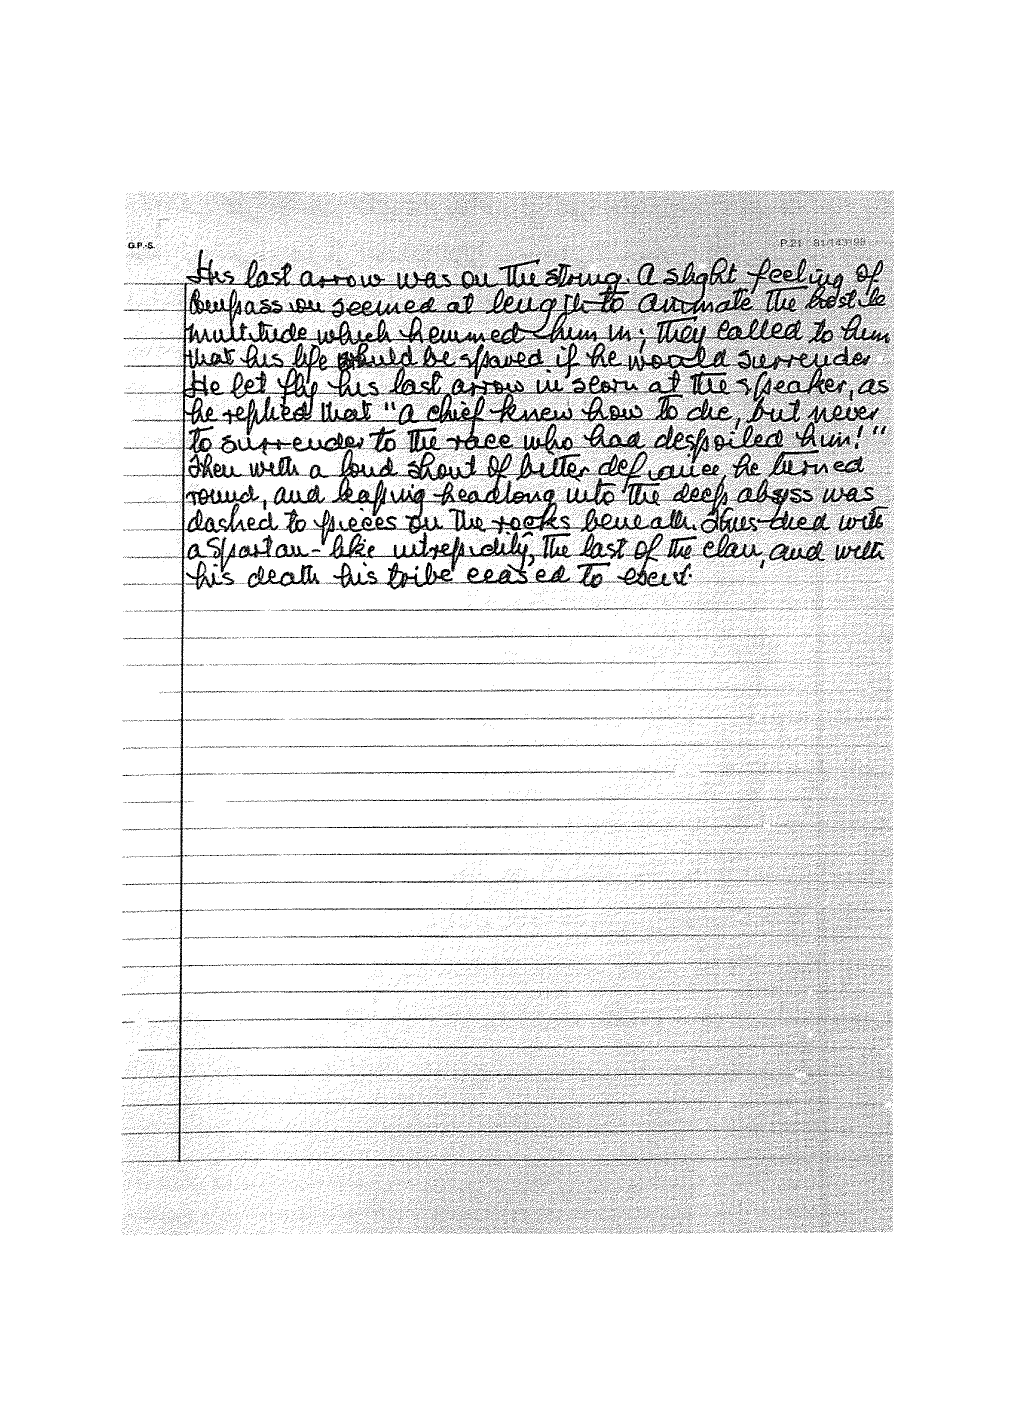 G.P.-S.
P.21 81/143198
His last arrow was on the string. A slight feeling of
compassion seemed at length to animate the hostile
multitude which hemmed him in; they called to him
that his life should be spared if he would surrender
He let fly his last arrow in scorn at the speaker, as
he replied that "a chief knew how to die, but never
to surrender to the race who had despoiled him!"
Then with a loud shout of bitter defiance he turned
round, and leaping headlong into the deep abyss was
dashed to pieces on the rocks beneath. Thus died with
a Spartan-like intrepidity, the last of the clan, and with
his death his tribe ceased to exist.